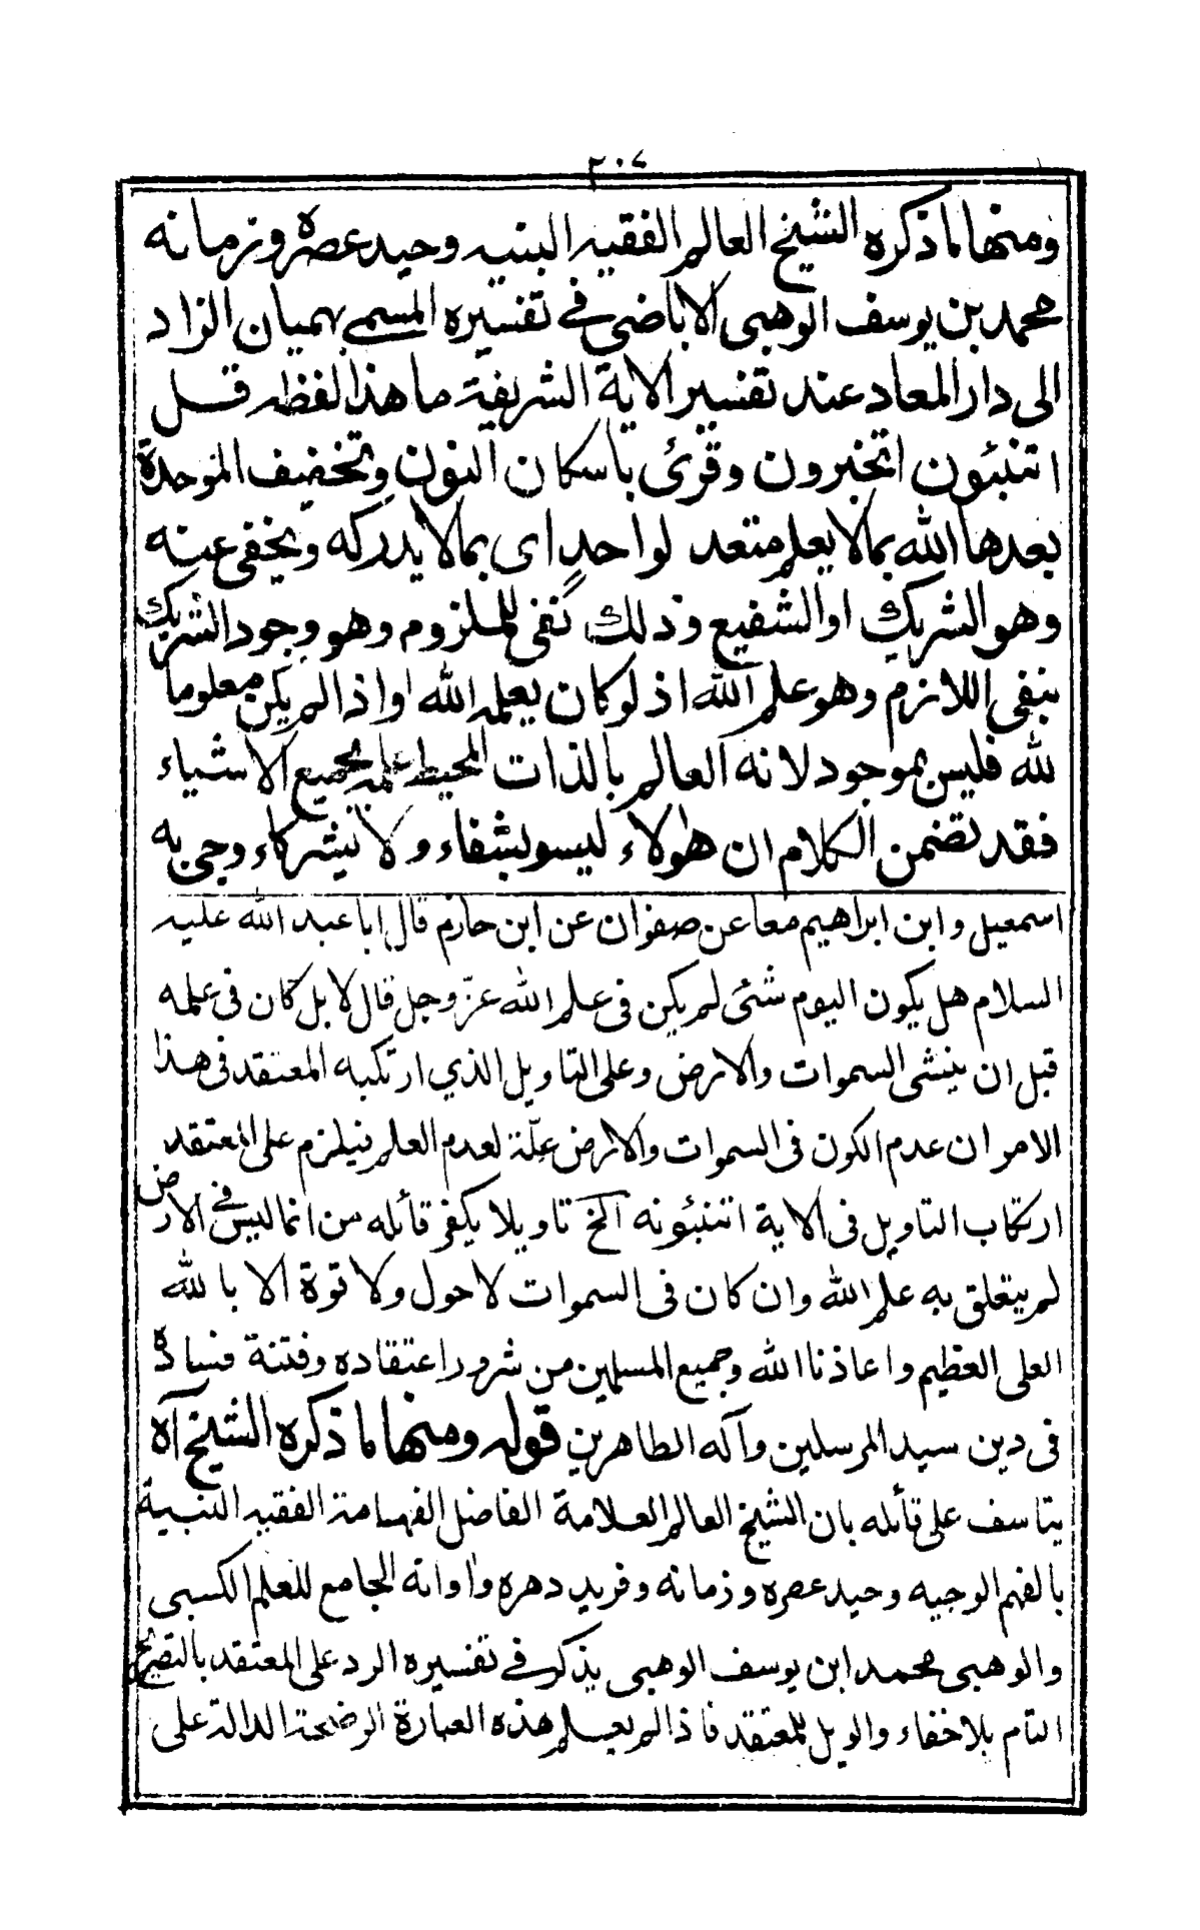 ٢٠٧
ومنها ما ذكره الشيخ العالم الفقيه النبيه وحيد عصره وزمانه
محمد بن يوسف الوهبى الاباضى في تفسيره المسمى بهميان الزاد
الى دار المعاد عند تفسير الاية الشريفة ما هذا لفظه قل
اتنبئون اتخبرون وقرئ باسكان النون وتخفيف الموحدة
بعدها الله بما لا يعلم متعد لواحد اى بما لا يدركه ويخفى عينه
وهو الشريك او الشفيع وذلك نفى للملزوم وهو وجود الشريك
بنفى اللازم وهو علم الله اذ لو كان يعلمه الله اواذا لم يكن معلوما
لله فليس بموجود لانه العالم بالذات المحيط علمه بجميع الاشياء
فقد تضمن الكلام ان هؤلاء ليسو بشفاء ولا بشركاء وجئ به
اسمعيل وابن ابراهيم معا عن صفوان عن ابن حازم قال ابا عبد الله عليه
السلام هل يكون اليوم شئى لم يكن فى علم الله عزّ وجل قال لا بل كان فى علمه
قبل ان ينشى السموات والارض وعلى التاويل الذي ارتكبه المعتقد فى هذا
الامر ان عدم الكون فى السموات والارض علّة لعدم العلم فيلزم على المعتقد
ارتكاب التاويل فى الاية اتنبئونه الخ تاويلا يكفر قائله من ان ما ليس في الارض
لم يتعلق به علم الله وان كان فى السموات لا حول ولا قوة الا بالله
العلى العظيم واعاذنا الله وجميع المسلمين من شرور اعتقاده وفتنة فساده
فى دين سيد المرسلين وآله الطاهرين قوله ومنها ما ذكره الشيخ آه
يتاسف على قائله بان الشيخ العالم العلامة الفاضل الفهامة الفقيه النبية
بالفهم الوجيه وحيد عصره وزمانه وفريد دهره واوانه الجامع للعلم الكسبى
والوهبى محمد ابن يوسف الوهبى يذكر في تفسيره الرد على المعتقد بالتصريح
التام بلا خفاء والويل للمعتقد فاذا لم يعلم هذه العبارة الوضحة الدالة على